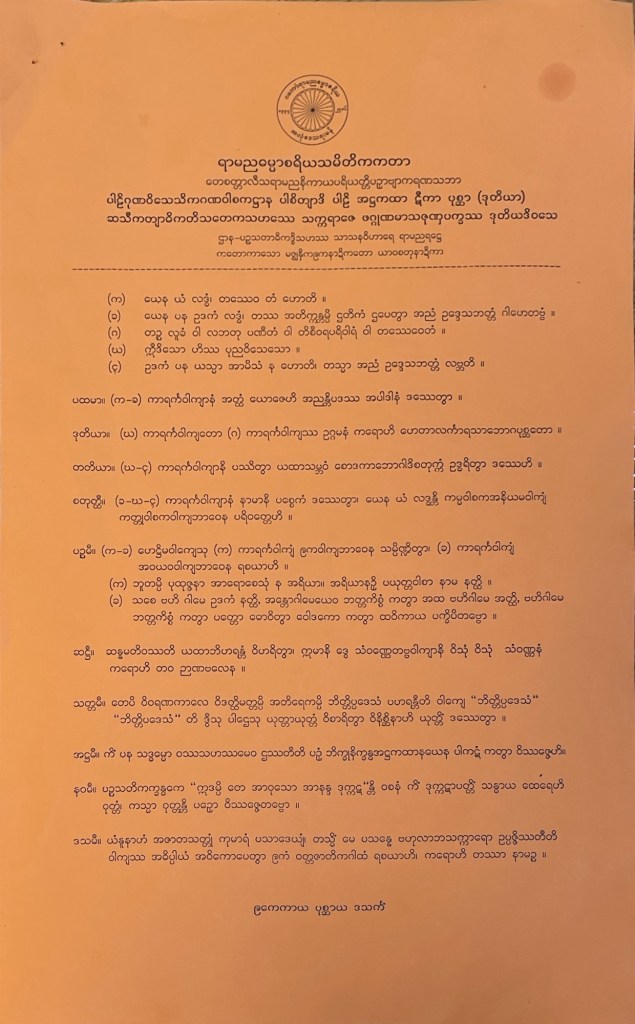 ရာမညဓမ္မာစရိယသမိတိကကတာ
တေစတ္တာလီသရာမညနိကာယပရိယတ္တိပဥှာဗျာကရဏသဘာ
ပါဠိဂုဏဝိသေသိကဂဏဝါစကဋ္ဌာန ပါစိတျာဒိ ပါဠိ အဋ္ဌကထာ ဋီကာ ပုစ္ဆာ (ဒုတိယာ)
ဆသီကတျာဓိကတိသတေကသဟဿေ သက္ကရာဇေ ဖဂ္ဂုဏမာသဇုဏှပက္ခဿ ဒုတိယဒိဝသေ
ဌာန-ပဥ္စသတာဓိကဒွိသဟဿ သာသနဝိဟာရေ ရာမညရဋ္ဌေ
ကတောကာသော မဇ္ဈန္ဟိကဧကနာဍိကတော ယာဝစတုနာဍိကာ
(က) ယေန ယံ လဒ္ဓံ၊ တဿေဝ တံ ဟောတိ ။
(ခ) ယေန ပန ဥဒကံ လဒ္ဓံ၊ တဿ အတိက္ကန္တမ္ပိ ဌတိကံ ဌပေတွာ အညံ ဥဒ္ဒေသဘတ္တံ ဂါဟေတဗ္ဗံ ။
(ဂ) တဉ္စ လူခံ ဝါ လဘတု ပဏီတံ ဝါ တိစီဝရပရိဝါရံ ဝါ တဿေဝေတံ ။
(ဃ) ဤဒိသော ဟိဿ ပုညဝိသေသော ။
(င) ဥဒကံ ပန ယသ္မာ အာမိသံ န ဟောတိ၊ တသ္မာ အညံ ဥဒ္ဒေသဘတ္တံ လဗ္ဘတိ ။
ပထမာ။ (က-ခ) ကာရင်္ကဝါကျာနံ အတ္ထံ ယောဇေဟိ အညန္တိပဒဿ အပါဒါနံ ဒဿေတွာ ။
ဒုတိယာ။ (ဃ) ကာရင်္ကဝါကျတော (ဂ) ကာရင်္ကဝါကျဿ ဥဂ္ဂမနံ ကရောဟိ ဟေတာလင်္ကာရသာဘောဂပုစ္ဆတော ။
တတိယာ။ (ဃ-င) ကာရင်္ကဝါကျာနိ ပဿိတွာ ယထာသမ္ဘဝံ စောဒကာဘောဂါဒိစတုက္ကံ ဥဒ္ဓရိတွာ ဒဿေဟိ ။
စတုတ္ထီ။ (ခ-ဃ-င) ကာရင်္ကဝါကျာနံ နာမာနိ ပစ္စေကံ ဒဿေတွာ၊ ယေန ယံ လဒ္ဓန္တိ ကမ္မဝါစကအနိယမဝါကျံ
ကတ္တုဝါစကဝါကျဘာဝေန ပရိဝတ္တေဟိ ။
ပဥ္စမီ။ (က-ခ) ဟေဋ္ဌိမဝါကျေသု (က) ကာရင်္ကဝါကျံ ဧကဝါကျဘာဝေန သမ္ပိဏ္ဍိတွာ၊ (ခ) ကာရင်္ကဝါကျံ
အဝယဝဝါကျဘာဝေန ရစယာဟိ ။
(က) ဘူတမ္ပိ ပုထုဇ္ဇနာ အာရောစေသုံ န အရိယာ။ အရိယာနဉှိ ပယုတ္တဝါစာ နာမ နတ္ထိ ။
(ခ) သစေ ဗဟိ ဂါမေ ဥဒကံ နတ္ထိ, အန္တောဂါမေယေဝ ဘတ္တကိစ္စံ ကတွာ အထ ဗဟိဂါမေ အတ္ထိ, ဗဟိဂါမေ
ဘတ္တကိစ္စံ ကတွာ ပတ္တော ဓောဝိတွာ ဝေါဒကော ကတွာ ထဝိကာယ ပက္ခိပိတဗ္ဗော ။
ဆဋ္ဌီ။ ဆန္နမတိဝဿတိ ယထာဘိဟရန္တံ ဝိဟရိတွာ၊ ဣမာနိ ဒွေ သံဝဏ္ဏေတဗ္ဗဝါကျာနိ ဝိသုံ ဝိသုံ သံဝဏ္ဏနံ
ကရောဟိ တဝ ဉာဏဗလေန ။
သတ္တမီ။ တေပိ ဝိဝရဏကာလေ ဝိဒတ္ထိမတ္တမ္ပိ အတိရေကမ္ပိ ဘိတ္တိပ္ပဒေသံ ပဟရန္တီတိ ဝါကျေ “ဘိတ္တိပ္ပဒေသံ”
“ဘိတ္တိပဒေသံ” တိ ဒွီသု ပါဌေသု ယုတ္တာယုတ္တံ ဝိစာရိတွာ ဝိနိစ္ဆိနာဟိ ယုတ္တိံ ဒဿေတွာ ။
အဋ္ဌမီ။ ကိံ ပန သဒ္ဓမ္မော ဝဿသဟဿမေဝ ဌဿတီတိ ပဉှံ ဘိက္ခုနိက္ခန္ဓအဋ္ဌကထာနယေန ပါကဋံ ကတွာ ဝိဿဇ္ဇေဟိ။
နဝမီ။ ပဉ္စသတိကက္ခန္ဓကေ “ဣဒမ္ပိ တေ အာဝုသော အာနန္ဒ ဒုက္ကဋ”န္တိ ဝစနံ ကိံ ဒုက္ကဋာပတ္တိံ သန္ဓာယ ထေရေဟိ
ဝုတ္တံ၊ ကသ္မာ ဝုတ္တန္တိ ပဉှော ဝိဿဇ္ဇေတဗ္ဗော ။
ဒသမီ။ ယံနူနာဟံ အဇာတသတ္တုံ ကုမာရံ ပသာဒေယျံ၊ တသ္မိံ မေ ပသန္နေ ဗဟုလာဘသက္ကာရော ဥပ္ပဇ္ဇိဿတီတိ
ဝါကျဿ အဓိပ္ပါယံ အဝိကောပေတွာ ဧကံ ဝတ္တဇာတိကဂါထံ ရစယာဟိ၊ ကရောဟိ တဿာ နာမဉ္စ ။
ဧကေကာယ ပုစ္ဆာယ ဒသင်္ကံ